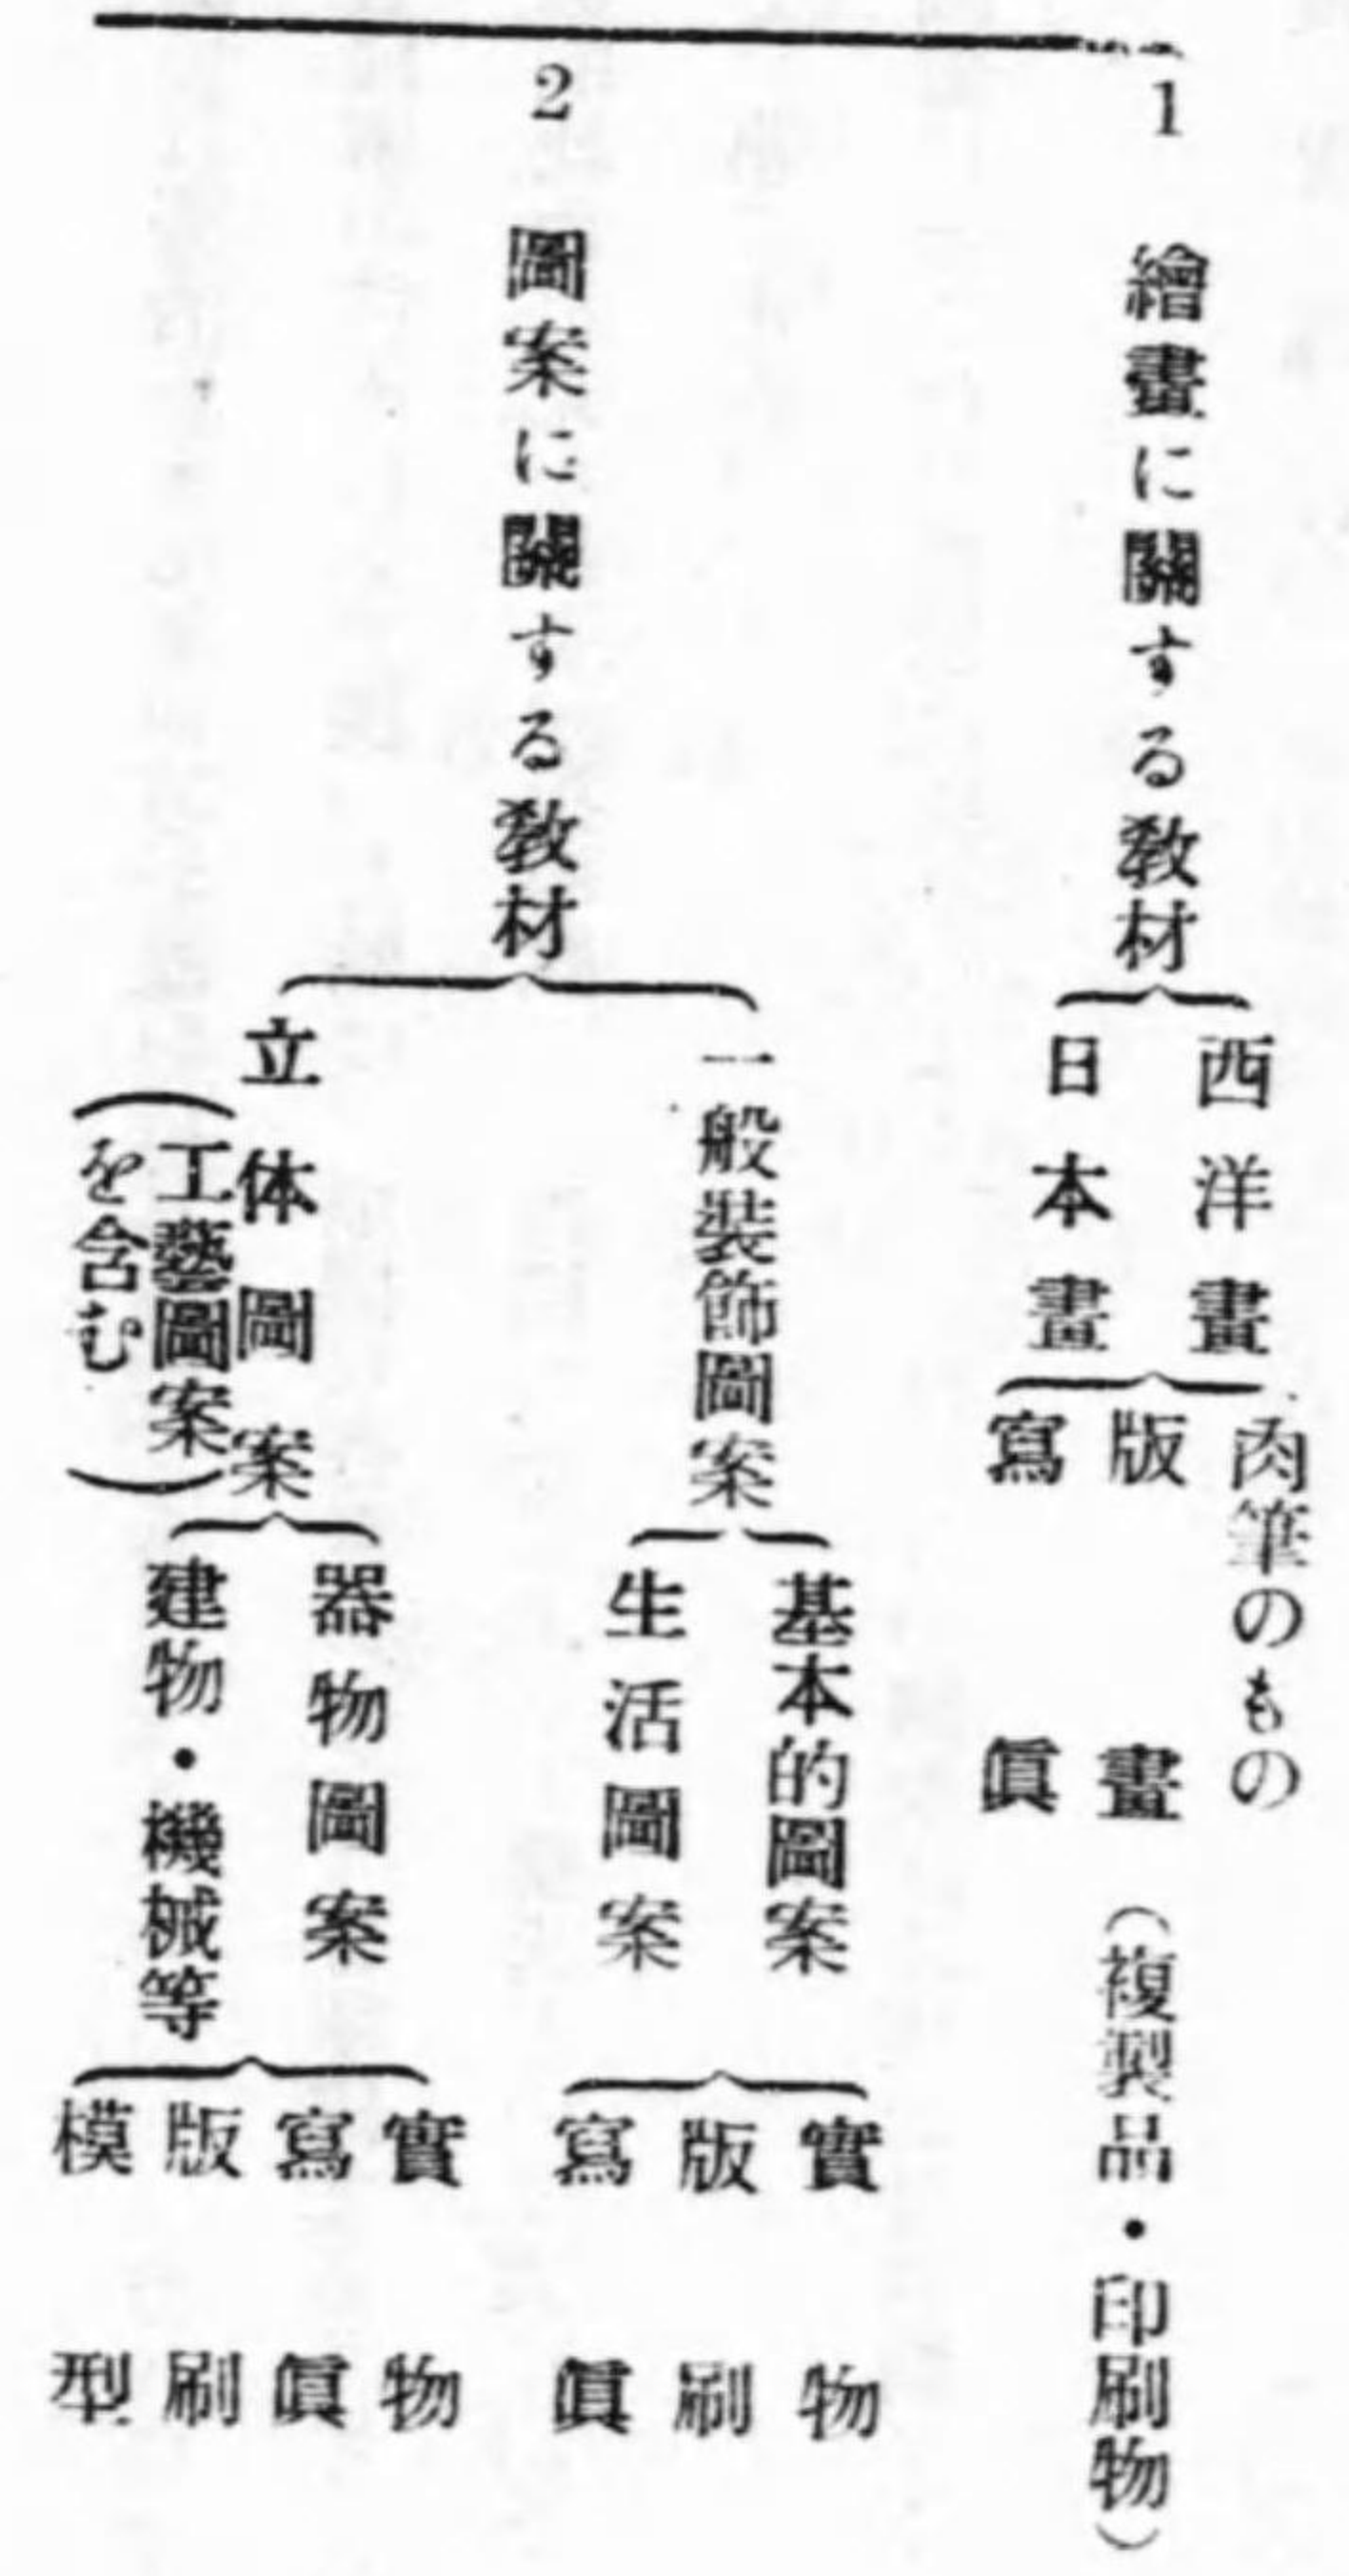 1 繪畫に關する敎材
西洋畫
日本畫
肉筆のもの
版畫（複製品・印刷物）
寫眞
2 圖案に關する敎材
一般裝飾圖案
基本的圖案
生活圖案
實物
版刷
寫眞
立体圖案
（工藝圖案
を含む）
器物圖案
建物・機械等
實物
寫眞
版刷
模型